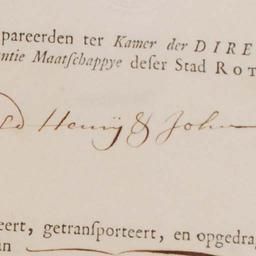 pareerden ter Kamer der DIRE
ntie Maatſchappye deſer Stad ROT
Henrÿ & John
eert, getranſporteert, en opgedrag
an